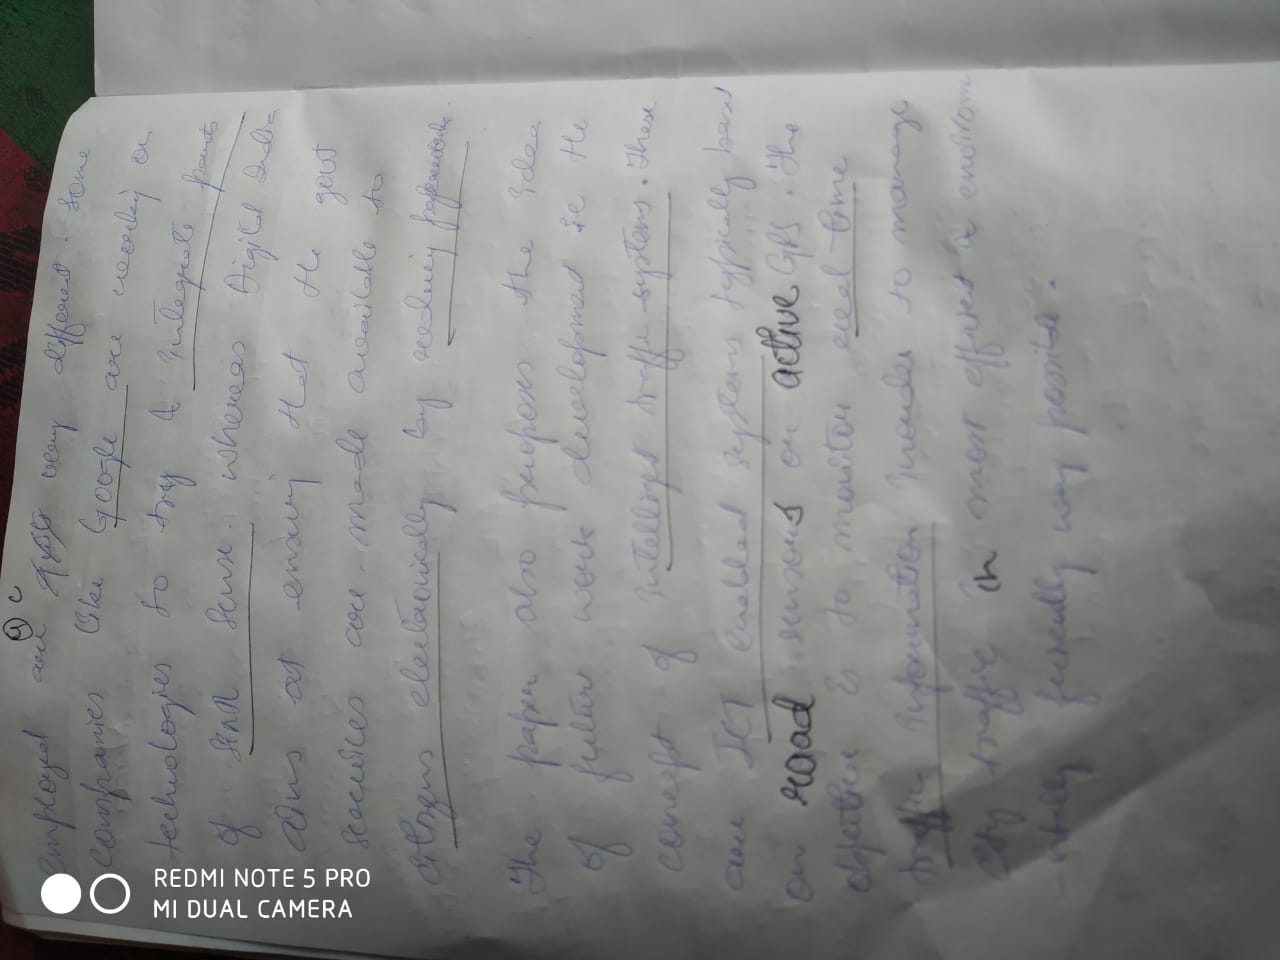 ④ c
employed are very different. Some
companies like Google are workig on
technologies to try & integrate parts
of Sense. whereas Digital India
aims at ensurig that the govt
services are made available to
citizens electronically by reducig paperwork.
The paper also proposes the idea
of future work development ie the
concept of Intelliget traffic systems. These
are ICT enabled systems typically based
on road sensors or active GPS. The
objective is to monitor real time
traffic information inorder to manage
city traffic in most efficient & environme
-ntally friendly way possible.
REDMI NOTE 5 PRO
MI DUAL CAMERA